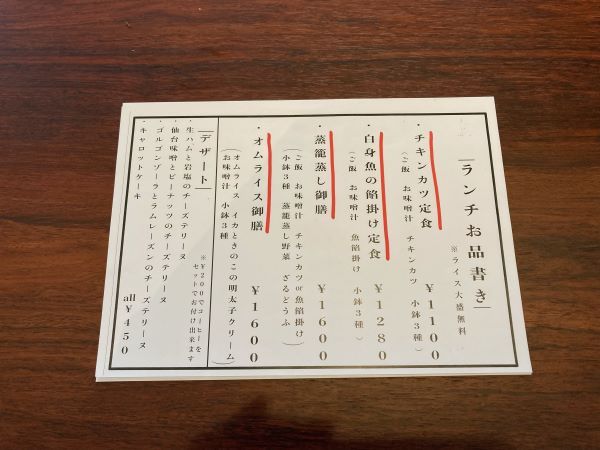 ランチお品書き
※ライス大盛無料
・チキンカツ定食 ￥1100
(ご飯 お味噌汁 チキンカツ 小鉢3種)
・白身魚の餡掛け定食 ￥1280
(ご飯 お味噌汁 魚餡掛け 小鉢3種)
・蒸籠蒸し御膳 ￥1600
(ご飯 お味噌汁 チキンカツor魚餡掛け
小鉢3種 蒸籠蒸し野菜 ざるどうふ)
・オムライス御膳 ￥1600
(オムライス イカときのこの明太子クリーム
お味噌汁 小鉢3種)
デザート
※￥200でコーヒーを
セットでお付け出来ます
・生ハムと岩塩のチーズテリーヌ
・仙台味噌とピーナッツのチーズテリーヌ
・ゴルゴンゾーラとラムレーズンのチーズテリーヌ
・キャロットケーキ
all￥450